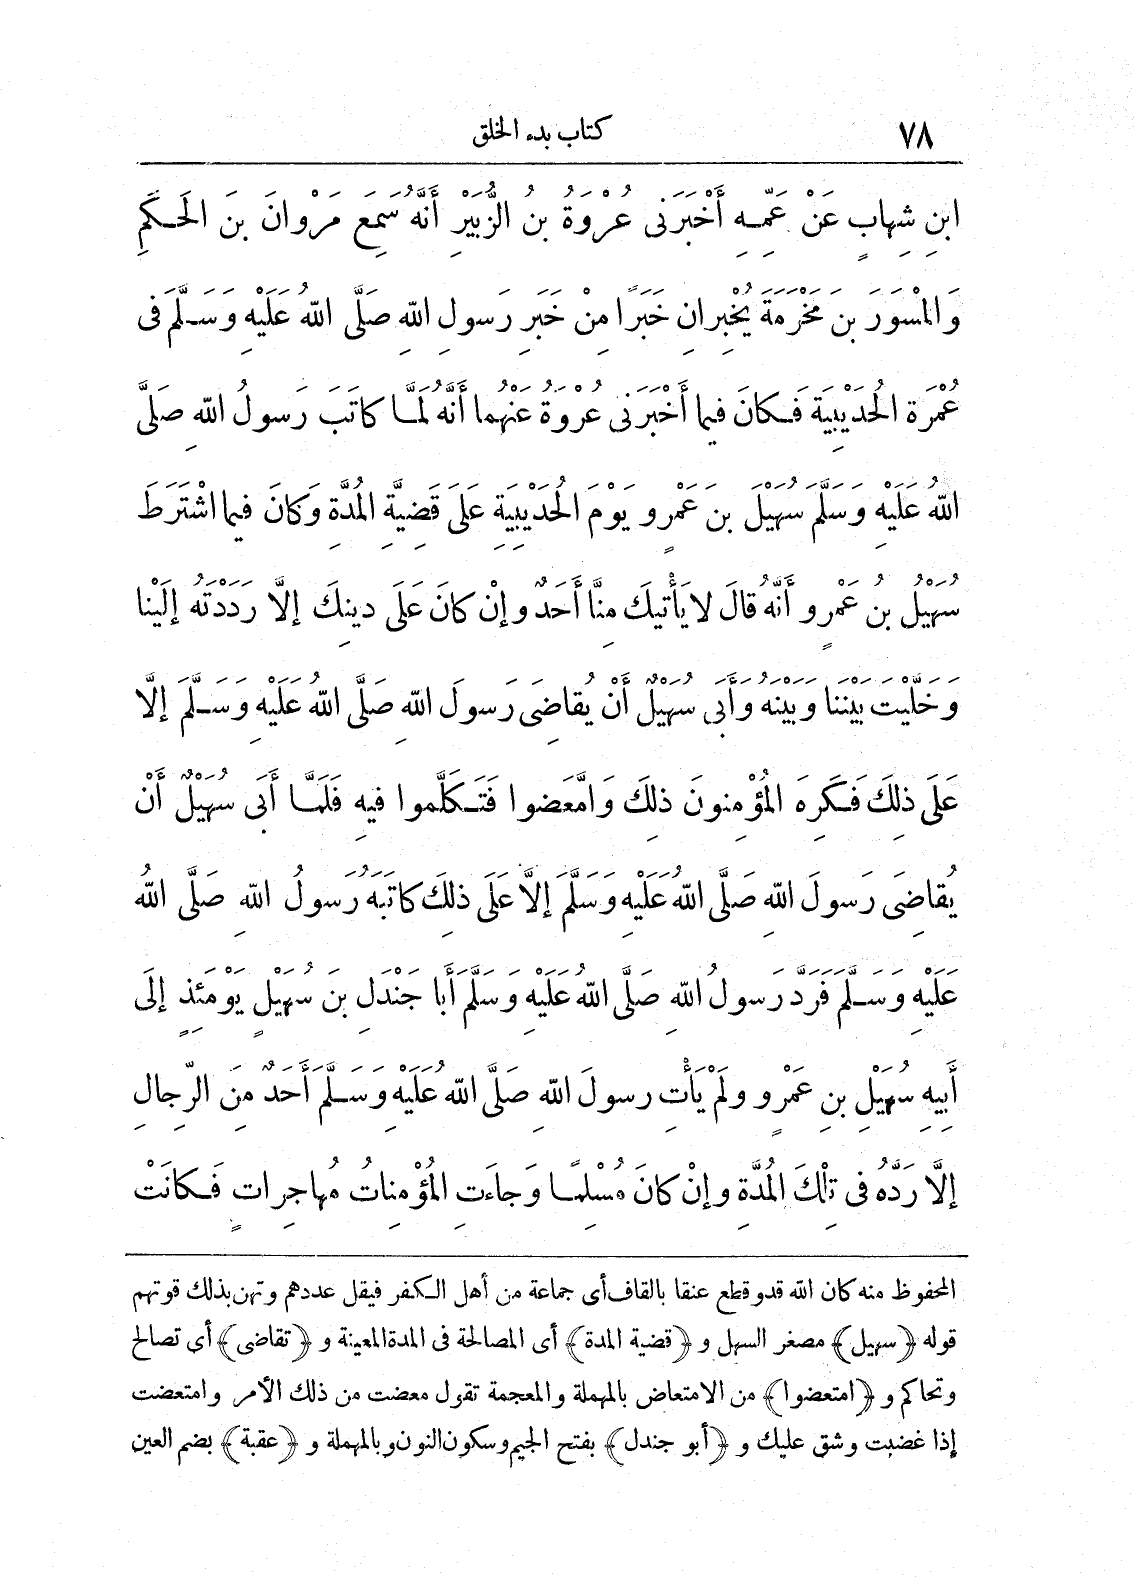 ٧٨ كتاب بدء الخلق
ابنِ شِهابٍ عَنْ عَمِّهِ أَخْبَرَنى عُرْوَةُ بنُ الزُّبَيْرِ أَنَّهُ سَمِعَ مَرْوانَ بنَ الحَكَمِ
وَالمِسْوَرَ بنَ مَخْرَمَةَ يُخْبِرانِ خَبَرًا مِنْ خَبَرِ رَسولِ اللهِ صَلَّى اللهُ عَلَيْهِ وَسَلَّمَ فى
عُمْرَة الحُدَيْبِيَةِ فَكانَ فيما أَخْبَرَنى عُرْوَةُ عَنْهُما أَنَّهُ لَمَّا كاتَبَ رَسولُ اللهِ صَلَّى
اللهُ عَلَيْهِ وَسَلَّمَ سُهَيْلَ بنَ عَمْرٍو يَوْمَ الحُدَيْبِيَةِ عَلَى قَضِيَّةِ المُدَّةِ وَكانَ فيما اشْتَرَطَ
سُهَيْلُ بنُ عَمْرٍو أَنَّهُ قالَ لا يَأْتيكَ مِنَّا أَحَدٌ وإنْ كانَ عَلَى دينِكَ إلَّا رَدَدْتَهُ إلَيْنا
وَخَلَّيْتَ بَيْنَنا وَبَيْنَهُ وَأَبى سُهَيْلٌ أَنْ يُقاضِىَ رَسولَ اللهِ صَلَّى اللهُ عَلَيْهِ وَسَلَّمَ إلَّا
عَلَى ذلِكَ فَكَرِهَ المُؤْمِنونَ ذلِكَ وَامَّعَضوا فَتَكَلَّموا فيهِ فَلَمَّا أَبَى سُهَيْلٌ أَنْ
يُقاضِىَ رَسولَ اللهِ صَلَّى اللهُ عَلَيْهِ وَسَلَّمَ إلَّا عَلَى ذلِكَ كاتَبَهُ رَسولُ اللهِ صَلَّى اللهُ
عَلَيْهِ وَسَلَّمَ فَرَدَّ رَسولُ اللهِ صَلَّى اللهُ عَلَيْهِ وَسَلَّمَ أَبا جَنْدَلِ بنَ سُهَيْلٍ يَوْمَئِذٍ إلَى
أَبيهِ سُهَيْلِ بنِ عَمْرٍو ولَمْ يَأْتِ رسولَ اللهِ صَلَّى اللهُ عَلَيْهِ وَسَلَّمَ أَحَدٌ مِنَ الرِّجالِ
إلَّا رَدَّهُ فى تِلْكَ المُدَّةِ وإنْ كانَ مُسْلِمًا وَجاءَتِ المُؤْمِناتُ مُهاجِراتٍ فَكانَتْ
المحفوظ منه كان الله قد وقطع عنقا بالقاف أى جماعة من أهل الكفر فيقل عددهم وتهن بذلك قوتهم
قوله ﴿سهيل﴾ مصغر السهل و ﴿قضية المدة﴾ أى المصالحة فى المدة المعينة و ﴿تقاضى﴾ أى تصالح
وتحاكم و ﴿امتعضوا﴾ من الامتعاض بالمهملة والمعجمة تقول معضت من ذلك الأمر وامتعضت
إذا غضبت وشق عليك و ﴿أبو جندل﴾ بفتح الجيم وسكون النون وبالمهملة و ﴿عقبة﴾ بضم العين